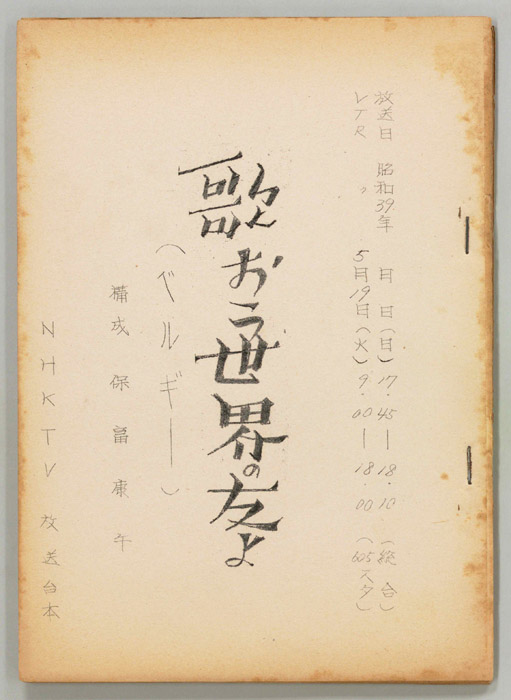 放送日 昭和39年 月 日(日) 17.45―18.10(総合)
VTR 〃 5月19日(火) 9.00―18.00(605スタ)
歌おう世界の友よ
(ベルギー)
構成 保富康午
NHKTV放送台本